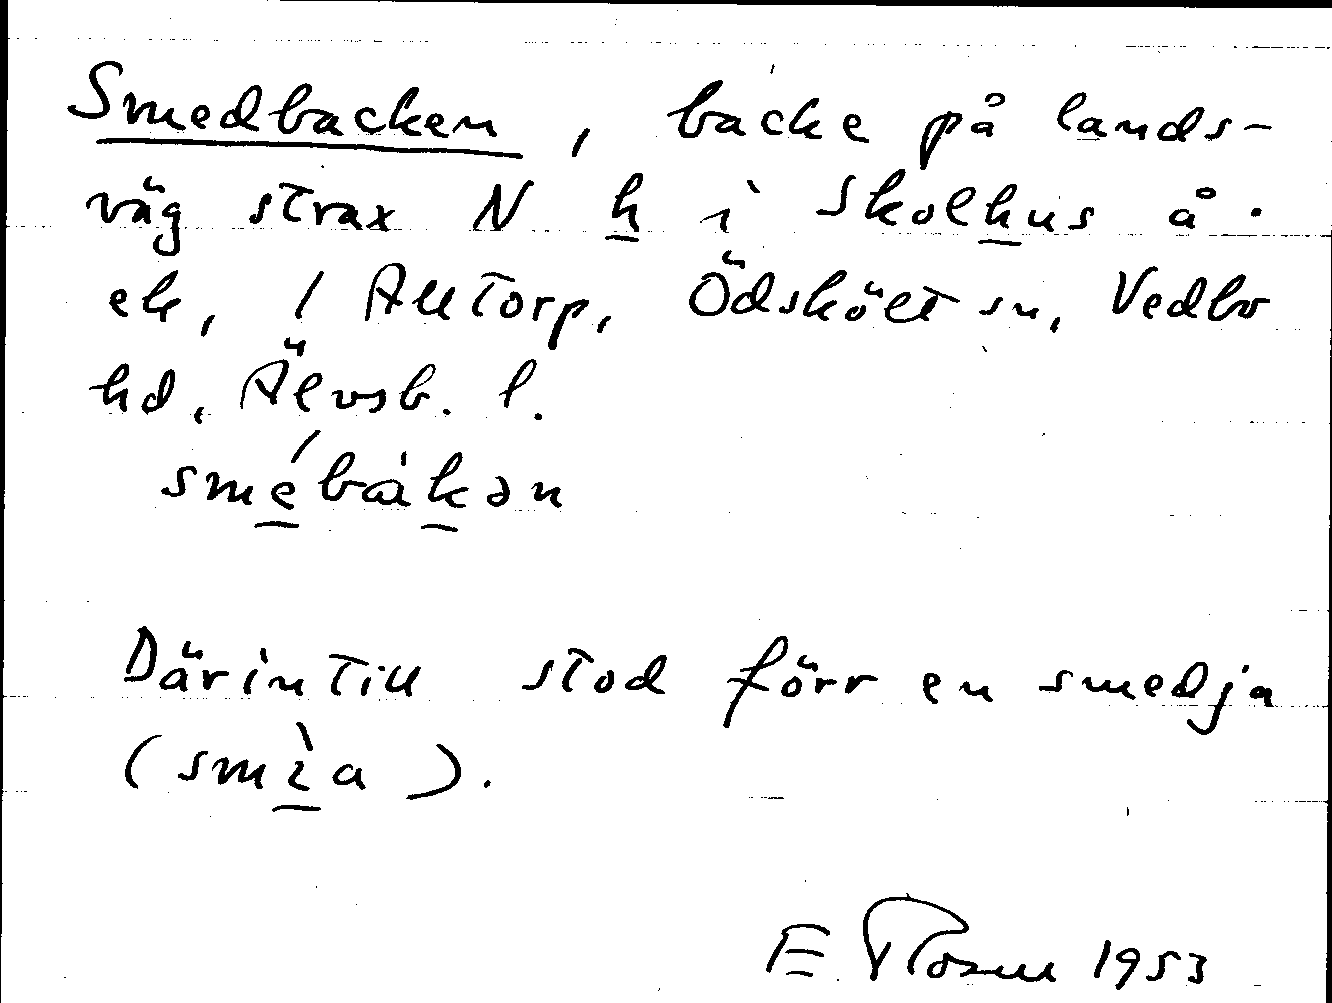 Smedbacken, backe på lands-
väg strax N h i Skolhus å.
ek, 1 Alltorp, Ödskölt sn, Vedbo
hd, Älvsb. l.
smébàkən
Därintill stod förr en smedja
(smèa).
E. Rosell 1953